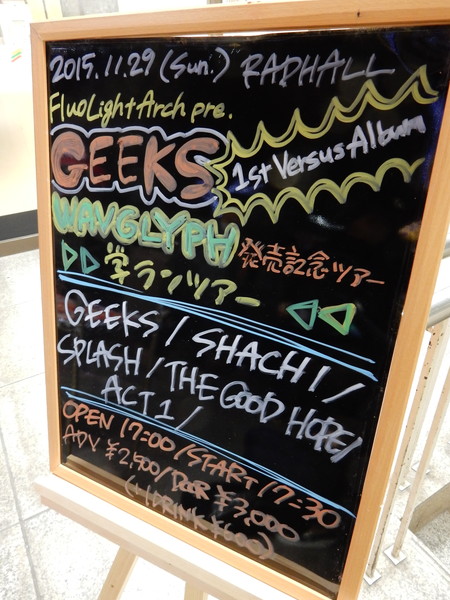 2015.11.29 (Sun.) RADHALL
FluoLightArch pre.
GEEKS 1st Versus Album
WANGLYPH 発売記念ツアー
▷▷ 学ランツアー ◁◁
GEEKS / SHACHI /
SPLASH / THE GOOD HOPE /
ACT 1 /
OPEN 17:00 / START 17:30
ADV ¥2,500 / DOOR ¥3,000
(+1DRINK ¥600)